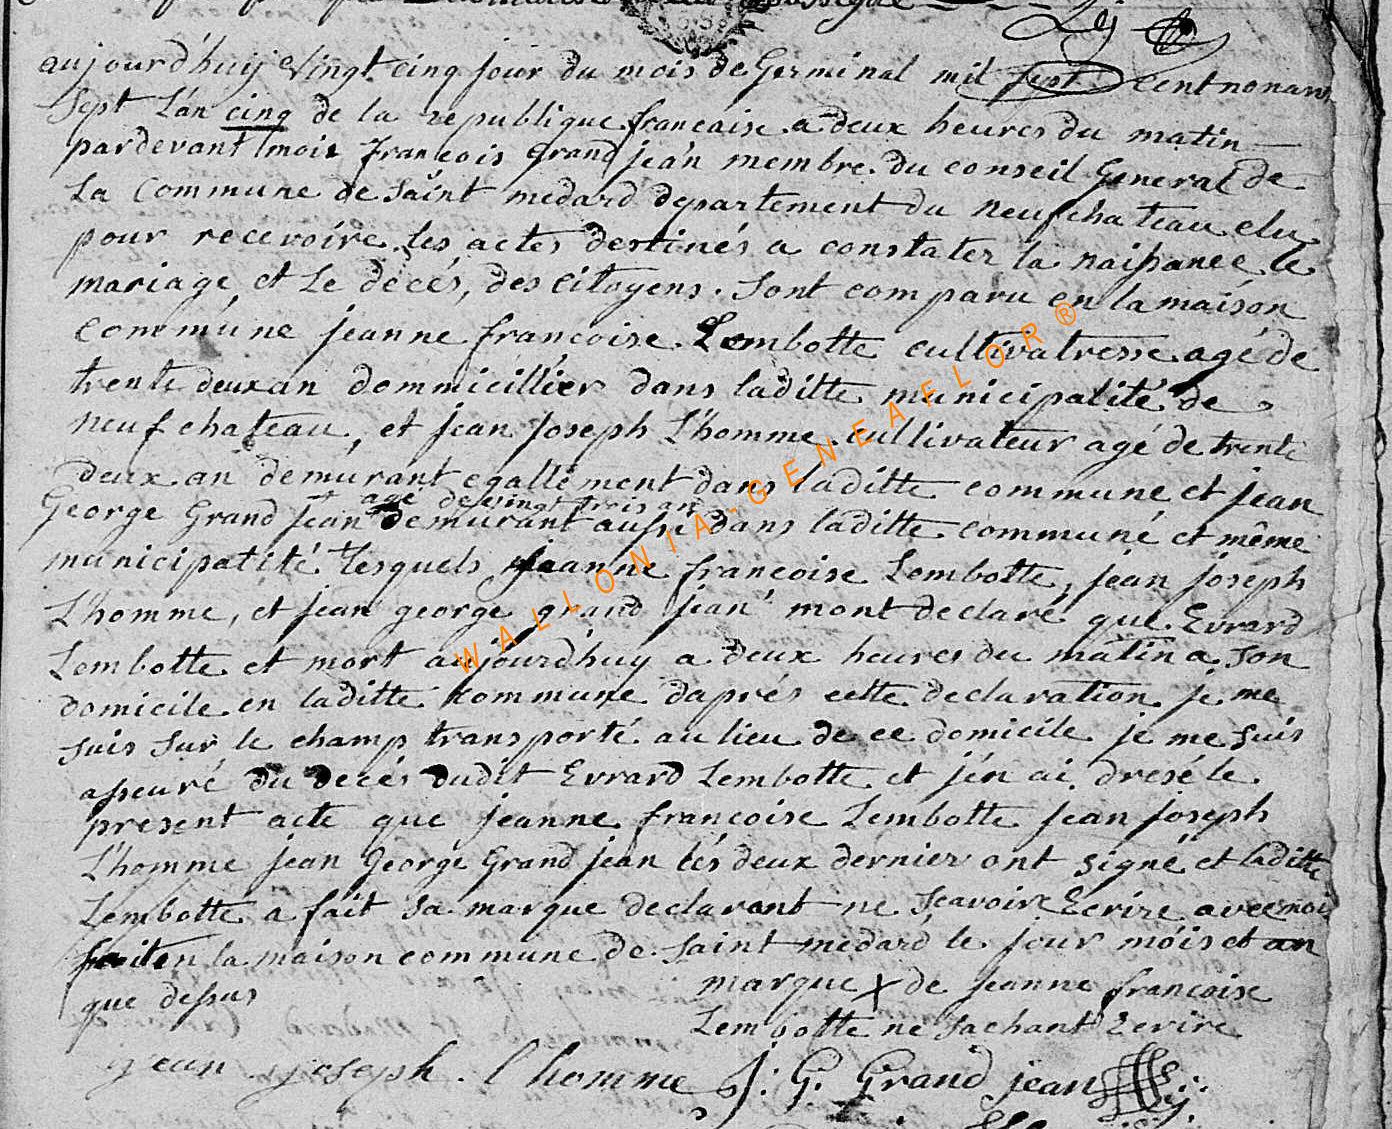 aujourd'huy vingt cinq jour du mois de Germinal mil sept cent nonante
Sept L'an cinq de la republique francaise a deux heures du matin
pardevant moi françois grand jean membre du conseil General de
La Commune de saint medard departement du neufchateau elu
pour recevoire les actes destinés a constater la naissance le
mariage, et Le decés, des citoyens. Sont comparu en la maison
commune jeanne françoise Lembotte cultivatresse agé de
trente deux an dommicillier dans laditte municipalité de
neufchateau, et jean joseph L'homme cultivateur agé de trente
deux an demurant egallement dans laditte commune et jean
agé de vingt trois an
George Grand jean demurant aussi dans laditte commune et même
municipalité lesquels jeanne françoise Lembotte, jean joseph
L'homme, et jean george grand jean mont declaré que Evrard
Lembotte et mort aujourd'huy a deux heures du matin a son
domicile en laditte commune daprés cette declaration je me
suis sur le champ transporté au lieu de ce domicile je me suis
asseuré du decés dudit Evrard Lembotte et j'en ai dresé le
present acte que jeanne françoise Lembotte jean joseph
L'homme jean George Grand jean les deux dernier ont signé et laditte
Lembotte a fait sa marque declarant ne scavoire Ecrire avec moi
fait en la maison commune de saint medard le jour mois et an
que dessus
marque X de jeanne françoise
Lembotte ne sachant Ecrire
jean joseph l'homme J: G: Grand jean
WALLONIA-GENEAFLOR ®